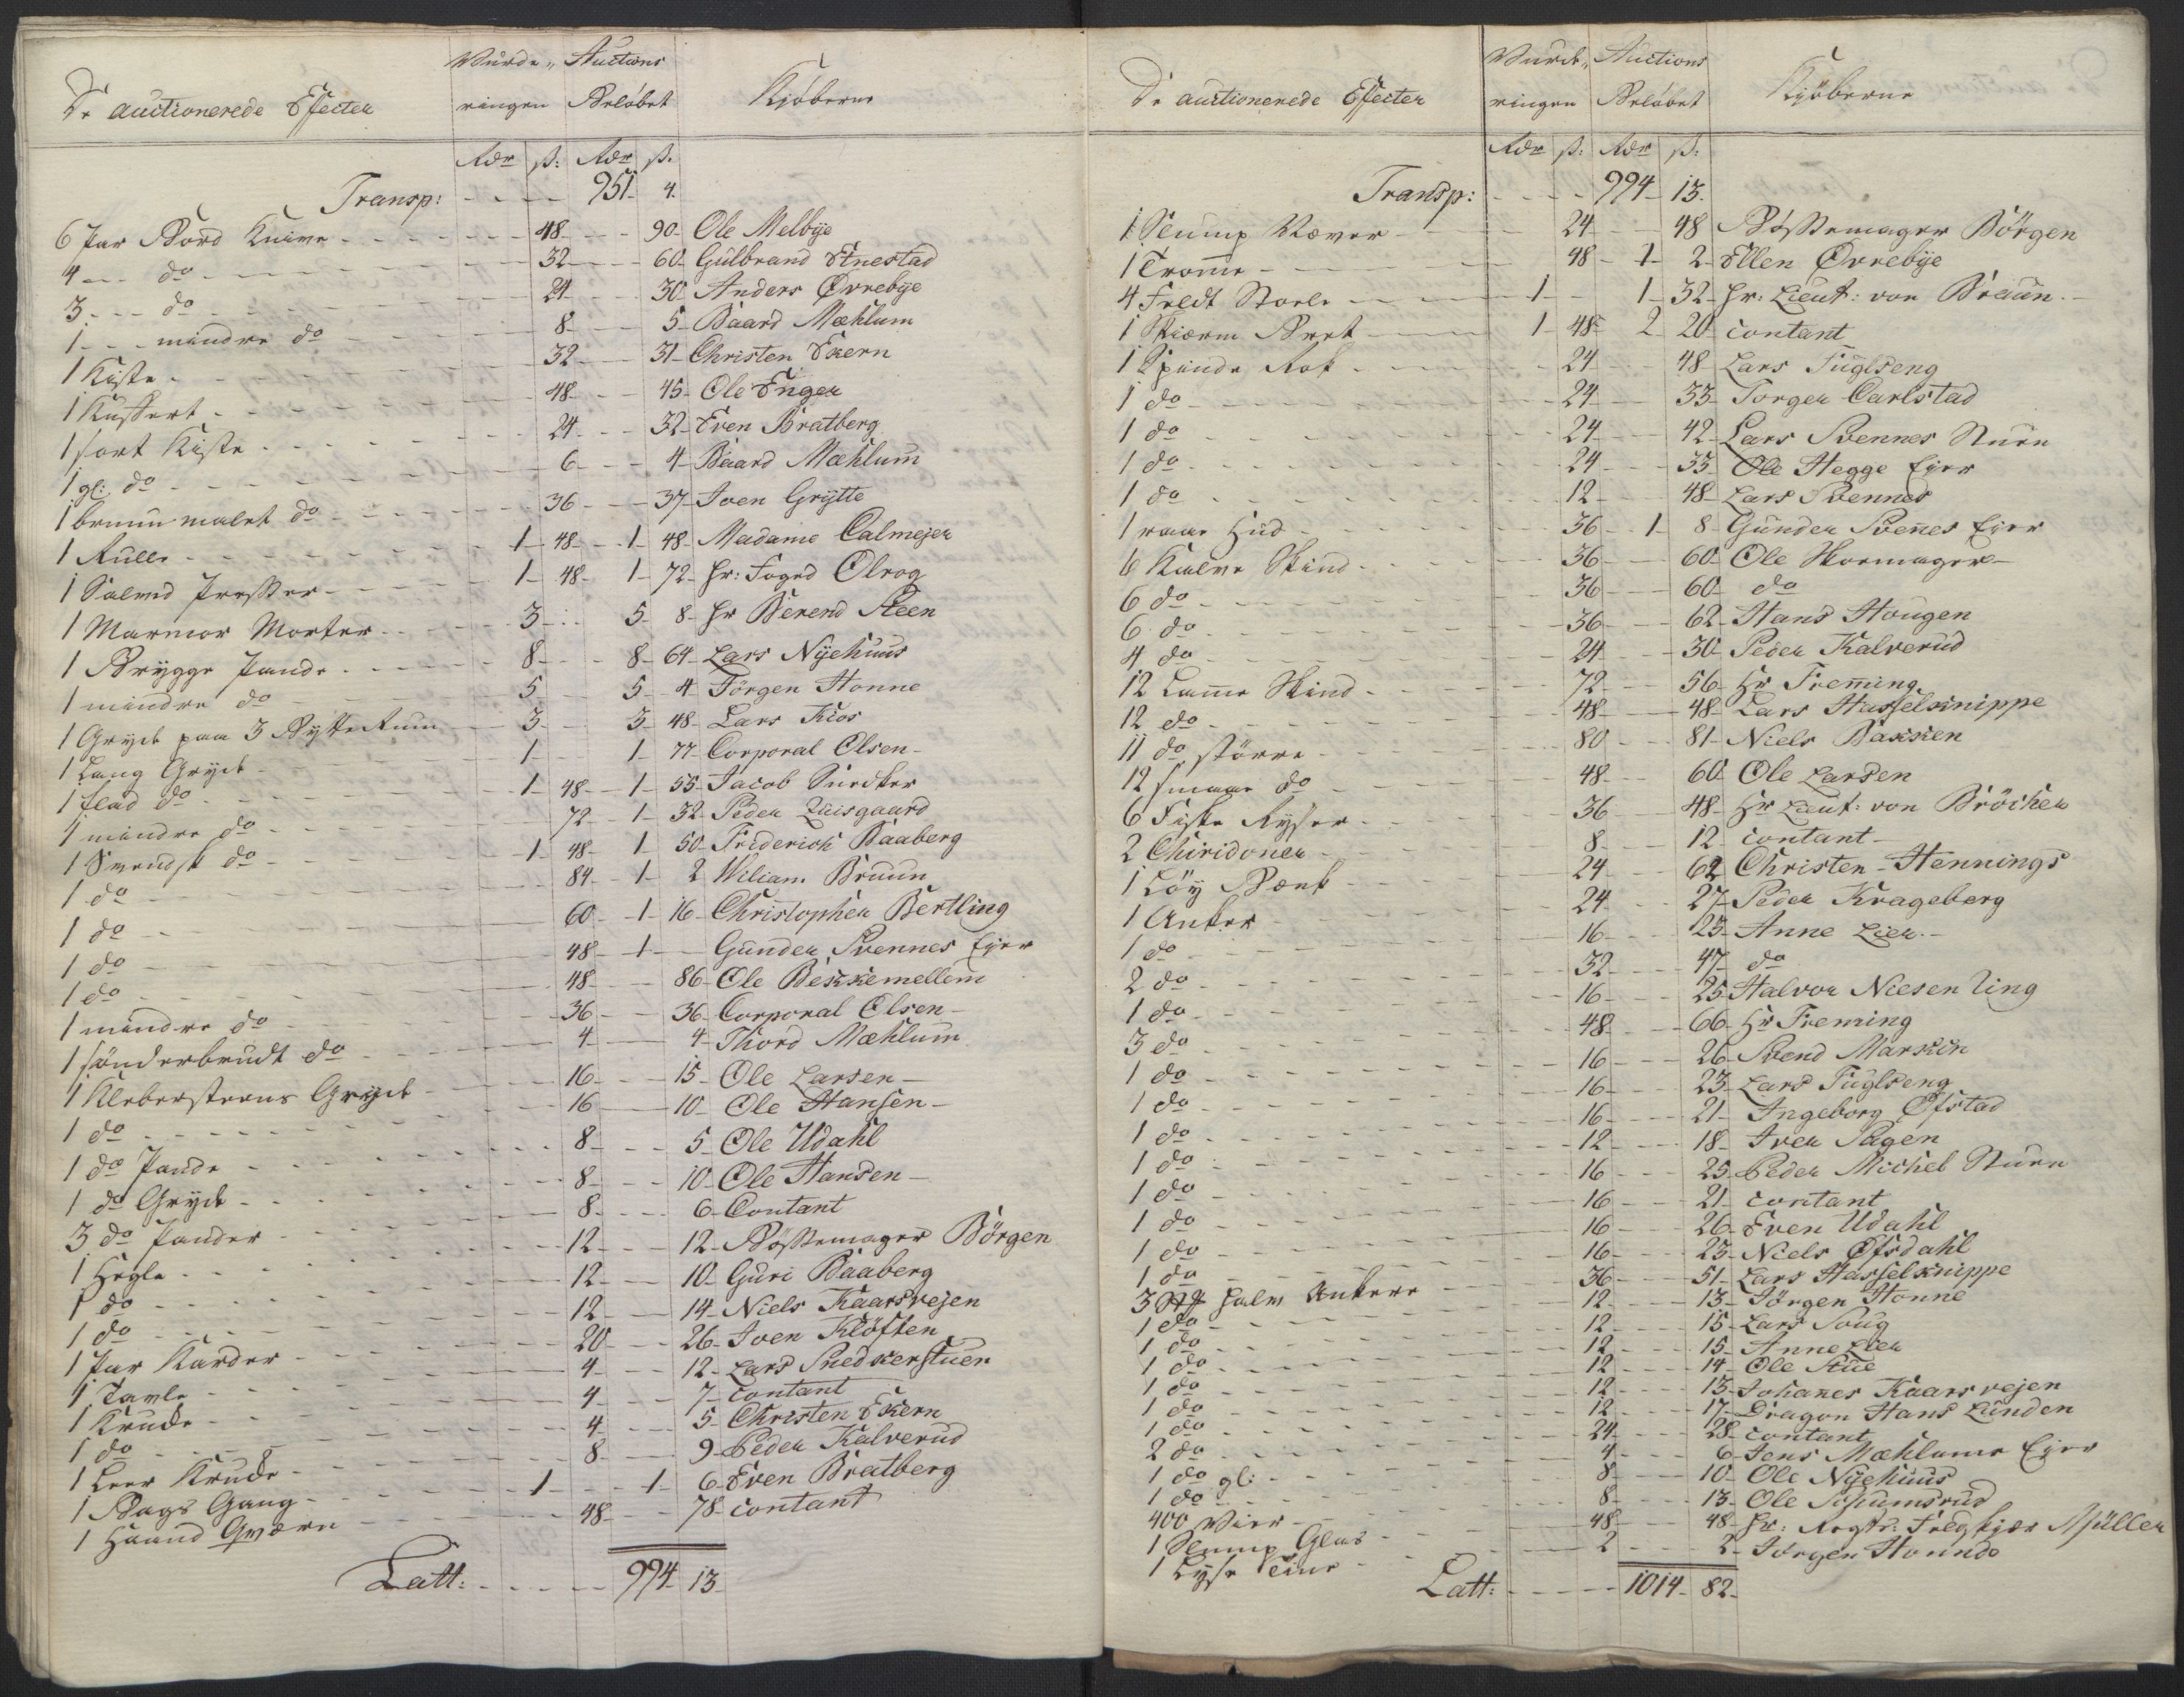 De auctionerede Effecter | Vurde„ringen | Auctions Beløbet | Kjøberne
Rdr ß: Rdr ß.
Transp: 951. 4.
6 Par Bord Knive 48 90 Ole Melbye
4 do 32 60 Gulbrand Etnestad
3 do 24 30 Anders Øvrebye
1 mindre do 8 5 Baard Mæhlum
1 Kiste 32 31 Christen Ekern
1 Kuffert 48 45 Ole Enger
1 sort Kiste 24 32 Even Bratberg
1 gl: do 6 4 Baard Mæhlum
1 bruun malet do 36 37 Iven Grytte
1 Rulle 1 48 1 48 Madame Calmejer
1 1 48 1 72 Hr: Foged Olrog
1 Marmor Morter 3 5 8 Hr Berend Steen
1 Brygge Pande 8 8 64 Lars Nyehuus
1 mindre do 5 5 4 Jörgen Honne
1 Gryde paa 3 Bytte Rum 3 3 48 Lars Kios
1 Lang Gryde 1 1 77 Corporal Olsen
1 flad do 1 48 1 55 Jacob Snedker
1 mindre do 72 1 32 Peder Quisgaard
1 Svendsk do 1 48 1 50 Friderich Baaberg
1 do 84 1 2 Wiliam Bruun
1 do 60 1 16 Christopher Bertling
1 do 48 1 Gunder Svennes Ejer
1 do 48 86 Ole Bekkemellem
1 mindre do 36 36 Corporal Olsen
1 sönderbrudt do 4 4 Thord Mæhlum
1 Klebersteens Gryde 16 15 Ole Larsen
1 do 16 10 Ole Hansen
1 do Pande 8 5 Ole Udahl
1 do Gryde 8 10 Ole Hansen
3 do Pander 8 6 Contant
1 Hegle 12 12 Bøssemager Börgen
1 do 12 10 Guri Baaberg
1 do 12 14 Niels Kaarsvejen
1 Par Karder 20 26 Iven Klöften
1 Tavle 4 12 Lars Snedkerstuen
1 Krukke 4 7 Contant
1 do 4 5 Christen Ekern
1 Leer Krukke 8 9 Peder Kalverud
1 Bags Gang 1 1 6 Even Bratberg
1 Haand Qværn 48 78 contant
Latt: 994 13

De auctionerede Effecter | Vurde„ringen | Auctions Beløbet | Kjøberne
Rdr ß: Rdr ß:
Transp: 994 13.
1 Slump Næver 24 48 Bøssemager Börgen
1 Tromme 48 1 2 Ellen Øvrebye
4 Feldt Stole 1 1 32 Hr: Lieut: von Braun
1 Skierm Bret 1 48 2 20 contant
1 Spinde Rok 24 48 Lars Fuglseng
1 do 24 33 Torger Carlstad
1 do 24 42 Lars Svennes Stuen
1 do 24 33 Ole Hegge Ejer
1 do 12 48 Lars Svennes
1 raae Hud 36 1 8 Gunder Svenes Ejer
6 Kalve Skind 36 60 Ole Skoemager
6 do 36 60 do
6 do 36 62 Hans Hougen
4 do 24 30 Peder Kalverud
12 Lamme Skind 72 56 Hr Freming
12 do 48 48 Lars Hasselknippe
11 do större 80 81 Niels Bakken
12 smaae do 48 60 Ole Larsen
6 Fiske Ryser 36 48 Hr Lieut: von Bröcher
2 Chiridoner 8 12 contant
1 Löy Bænk 24 62 Christen Hennings
1 Anker 24 27 Peder Krageberg
1 do 16 23 Anne Lier
2 do 32 47 do
1 do 16 25 Halvor Niesenling
3 do 48 66 Hr Freming
1 do 16 26 Svend Marskin
1 do 16 23 Lars Fuglseng
1 do 16 21 Ingeborg Øfstad
1 do 12 18 Iver Sagen
1 do 16 25 Peder Michel Stuen
1 do 16 21 contant
1 do 16 26 Even Udahl
1 do 16 23 Niels Øfsdahl
3 halve Ankere 36 51 Lars Hasselknippe
1 do 12 13 Jörgen Honne
1 do 12 15 Lars Soug
1 do 12 15 Anne Lier
1 do 12 14 Ole Stue
1 do 12 13 Johanes Kaarsvejen
1 do 12 17 Dragon Hans Lunden
2 do 24 28 contant
1 do gl: 4 6 Jens Mæhlums Ejer
1 do 8 10 Ole Nyehuus
400 Vier 8 13 Ole
1 Slump Glas 48 48 Hr: Regts: Feldskjær Müller
1 Lyse Tine 2 2 Jörgen Honne
Latt: 1014 82